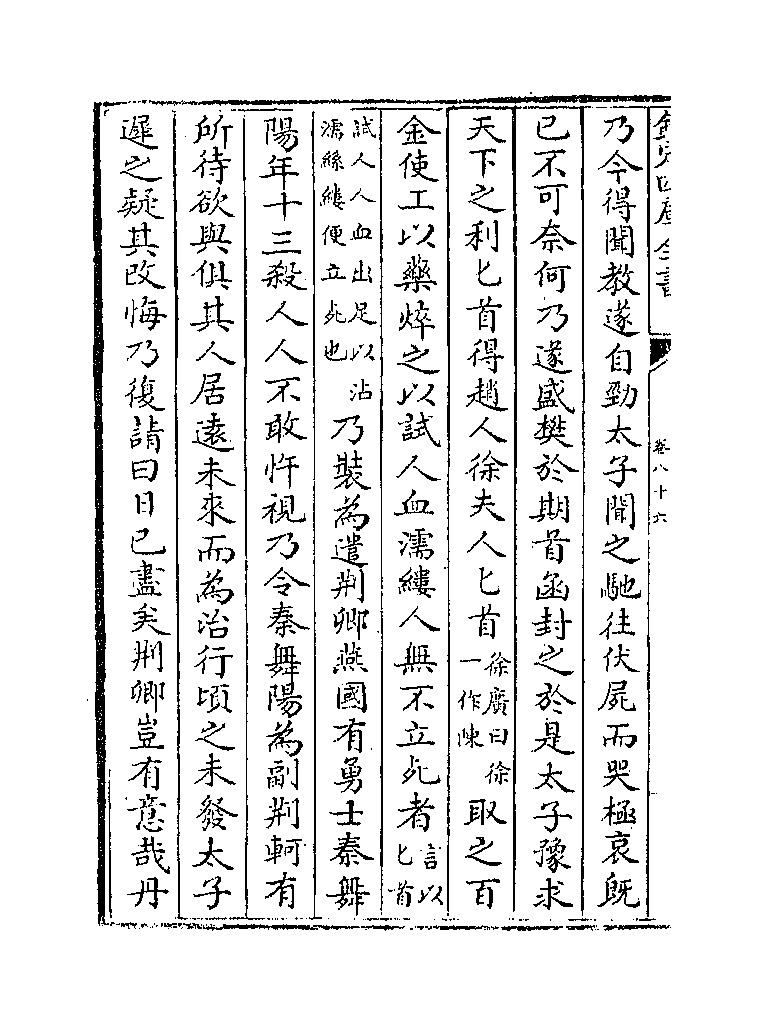 欽定四庫全書
卷八十六
乃今得聞教遂自勁太子聞之馳往伏屍而哭極哀既
已不可奈何乃遂盛樊於期首函封之於是太子豫求
天下之利匕首得趙人徐夫人匕首徐廣曰徐一作陳取之百
金使工以藥焠之以試人血濡縷人無不立死者言以匕首
試人人血出足以沾濡絲縷便立死也乃裝為遣荆卿燕國有勇士秦舞
陽年十三殺人人不敢忤視乃令秦舞陽為副荆軻有
所待欲與俱其人居遠未來而為治行頃之未發太子
遲之疑其改悔乃復請曰日已盡矣荆卿豈有意哉丹